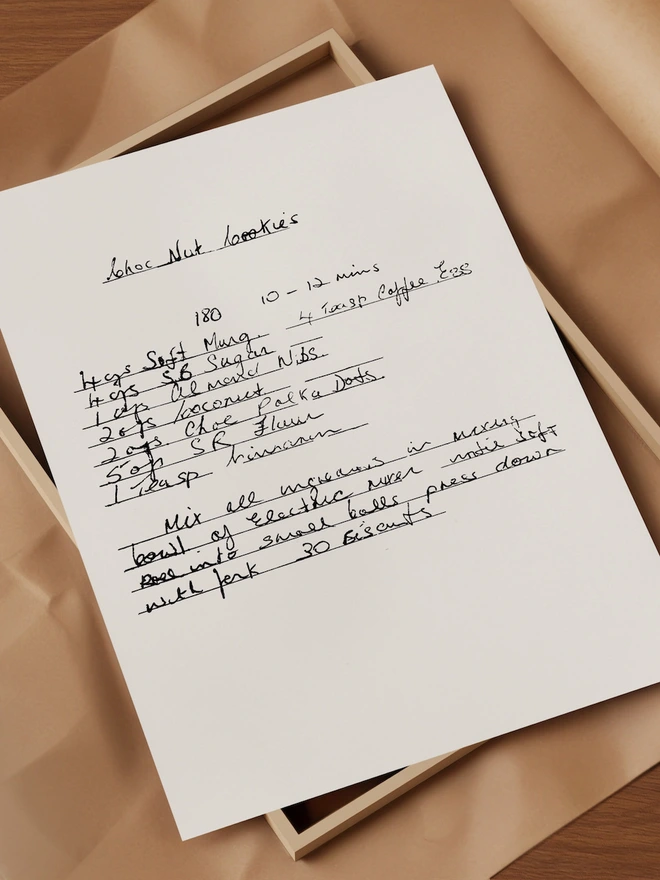 Choc Nut Cookies
180 10 - 12 mins
4 ozs Soft Marg. 4 Teasp Coffee Ess
4 ozs SR Sugar
1 ozs Almond Nibs.
2 ozs Coconut
2 ozs. Choc Polka Dots
5 ozs SR Flour
1 Teasp Cinnamon
Mix all in mixing
bowl of Electric mixer until Soft
Roll into small balls, press down
with fork 30 Biscuits